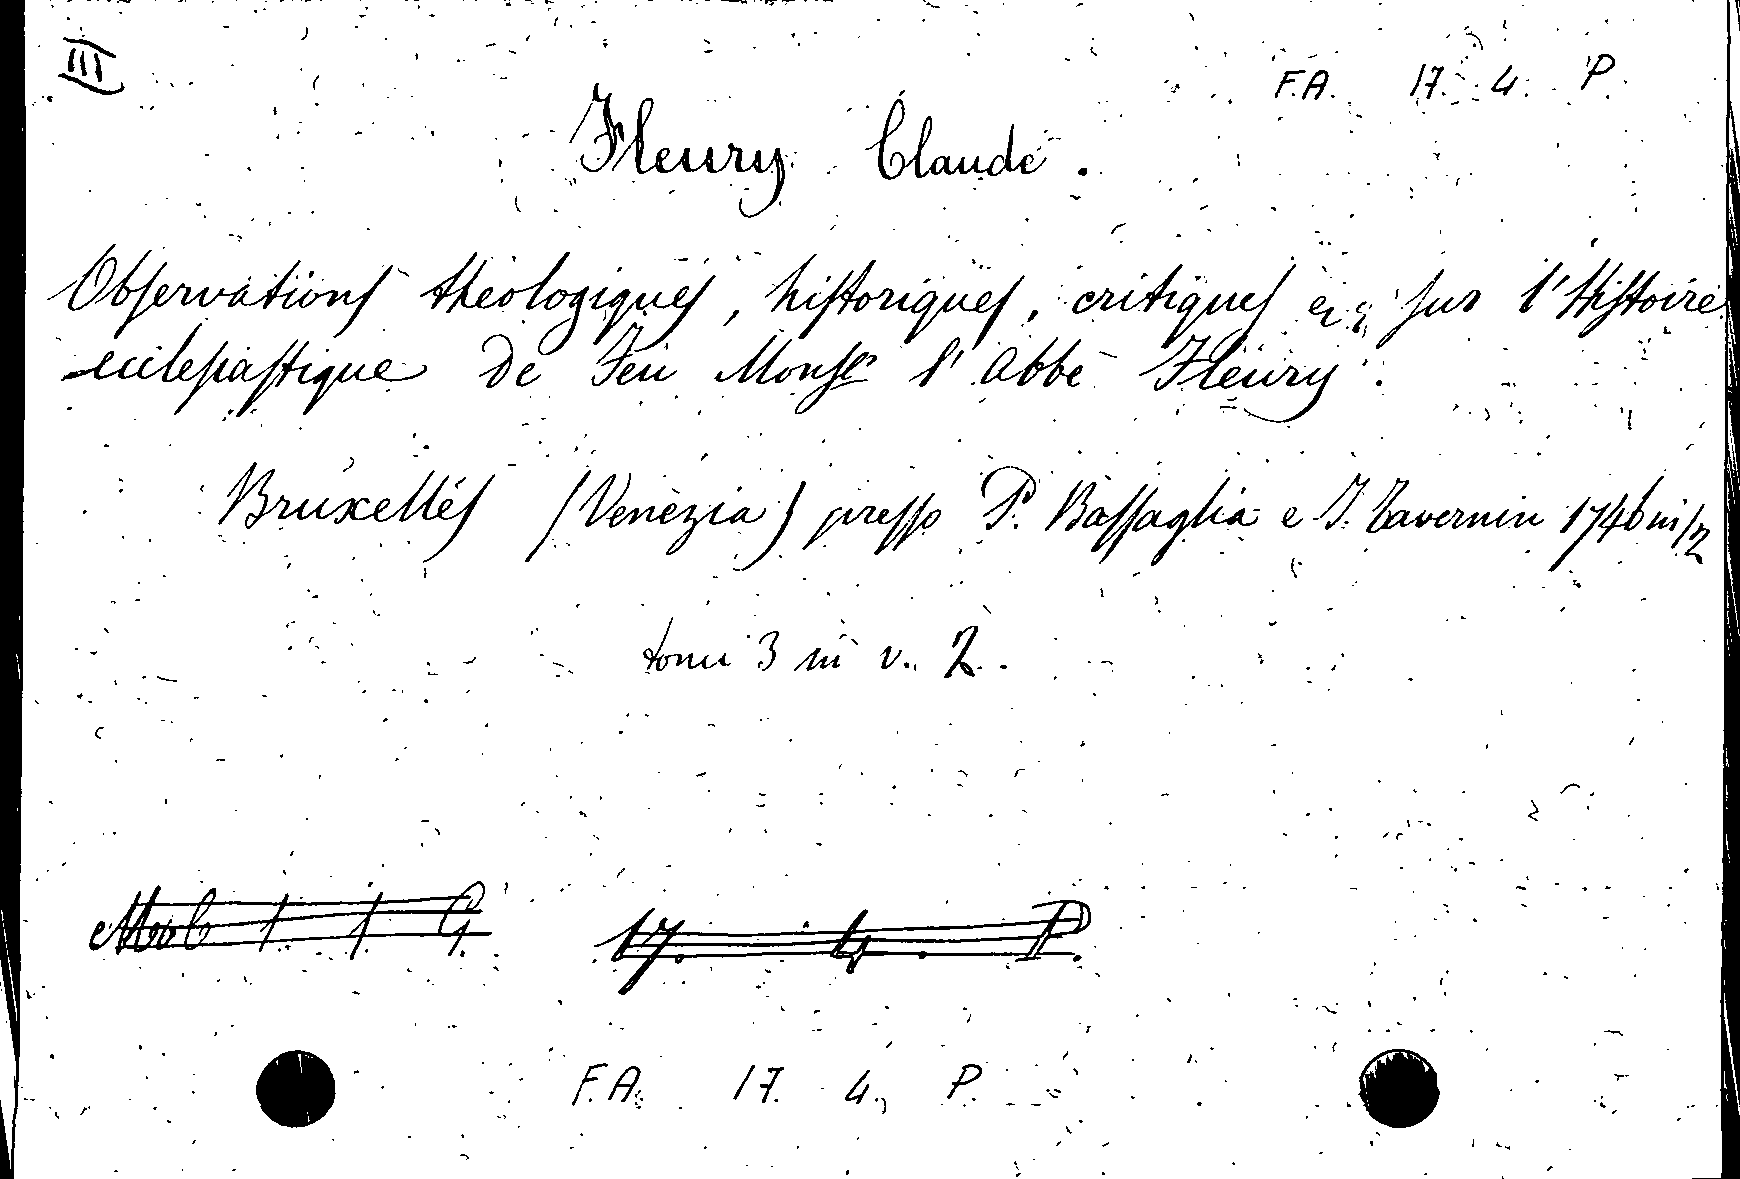 III
F.A. 17. 4. P.
Fleury Claude.
Observations théologiques, historiques, critiques sur l'Histoire
ecclesiastique de Feu Monsr l'abbé Fleury.
Bruxelles (Venezia) presso P. Bassaglia e I. Tavernin 1746 in 12
tomi 3 in v. 2.
17. 4. P.
F.A. 17. 4. P.